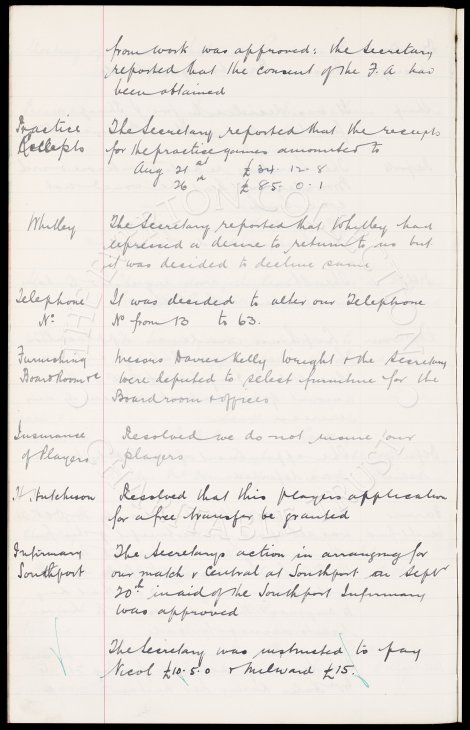 from work was approved: the Secretary
reported that the consent of the F. A had
been obtained
Practice
Receipts
The Secretary reported that the receipts
for the practice games amounted to
Aug 21 st £34. 12. 8
26 £85. 0. 1
Whitley
The Secretary reported that Whitley had
expressed a desire to return to us but
it was decided to decline same
Telephone
No
It was decided to alter our Telephone
No from 13 to 63.
Furnishing
Board Room &c
Messrs Davies Kelly Wright & the Secretary
were deputed to select furniture for the
Boardroom & offices
Insurance
of Players
Resolved we do not insure our
players
H. Hutchison
Resolved that this players application
for a free transfer be granted
Infirmary
Southport
The Secretarys action in arranging for
our match v Central at Southport on Sept
20th in aid of the Southport Infirmary
was approved
The Secretary was instructed to pay
Nicol £10. 5. 0 & Milward £15.